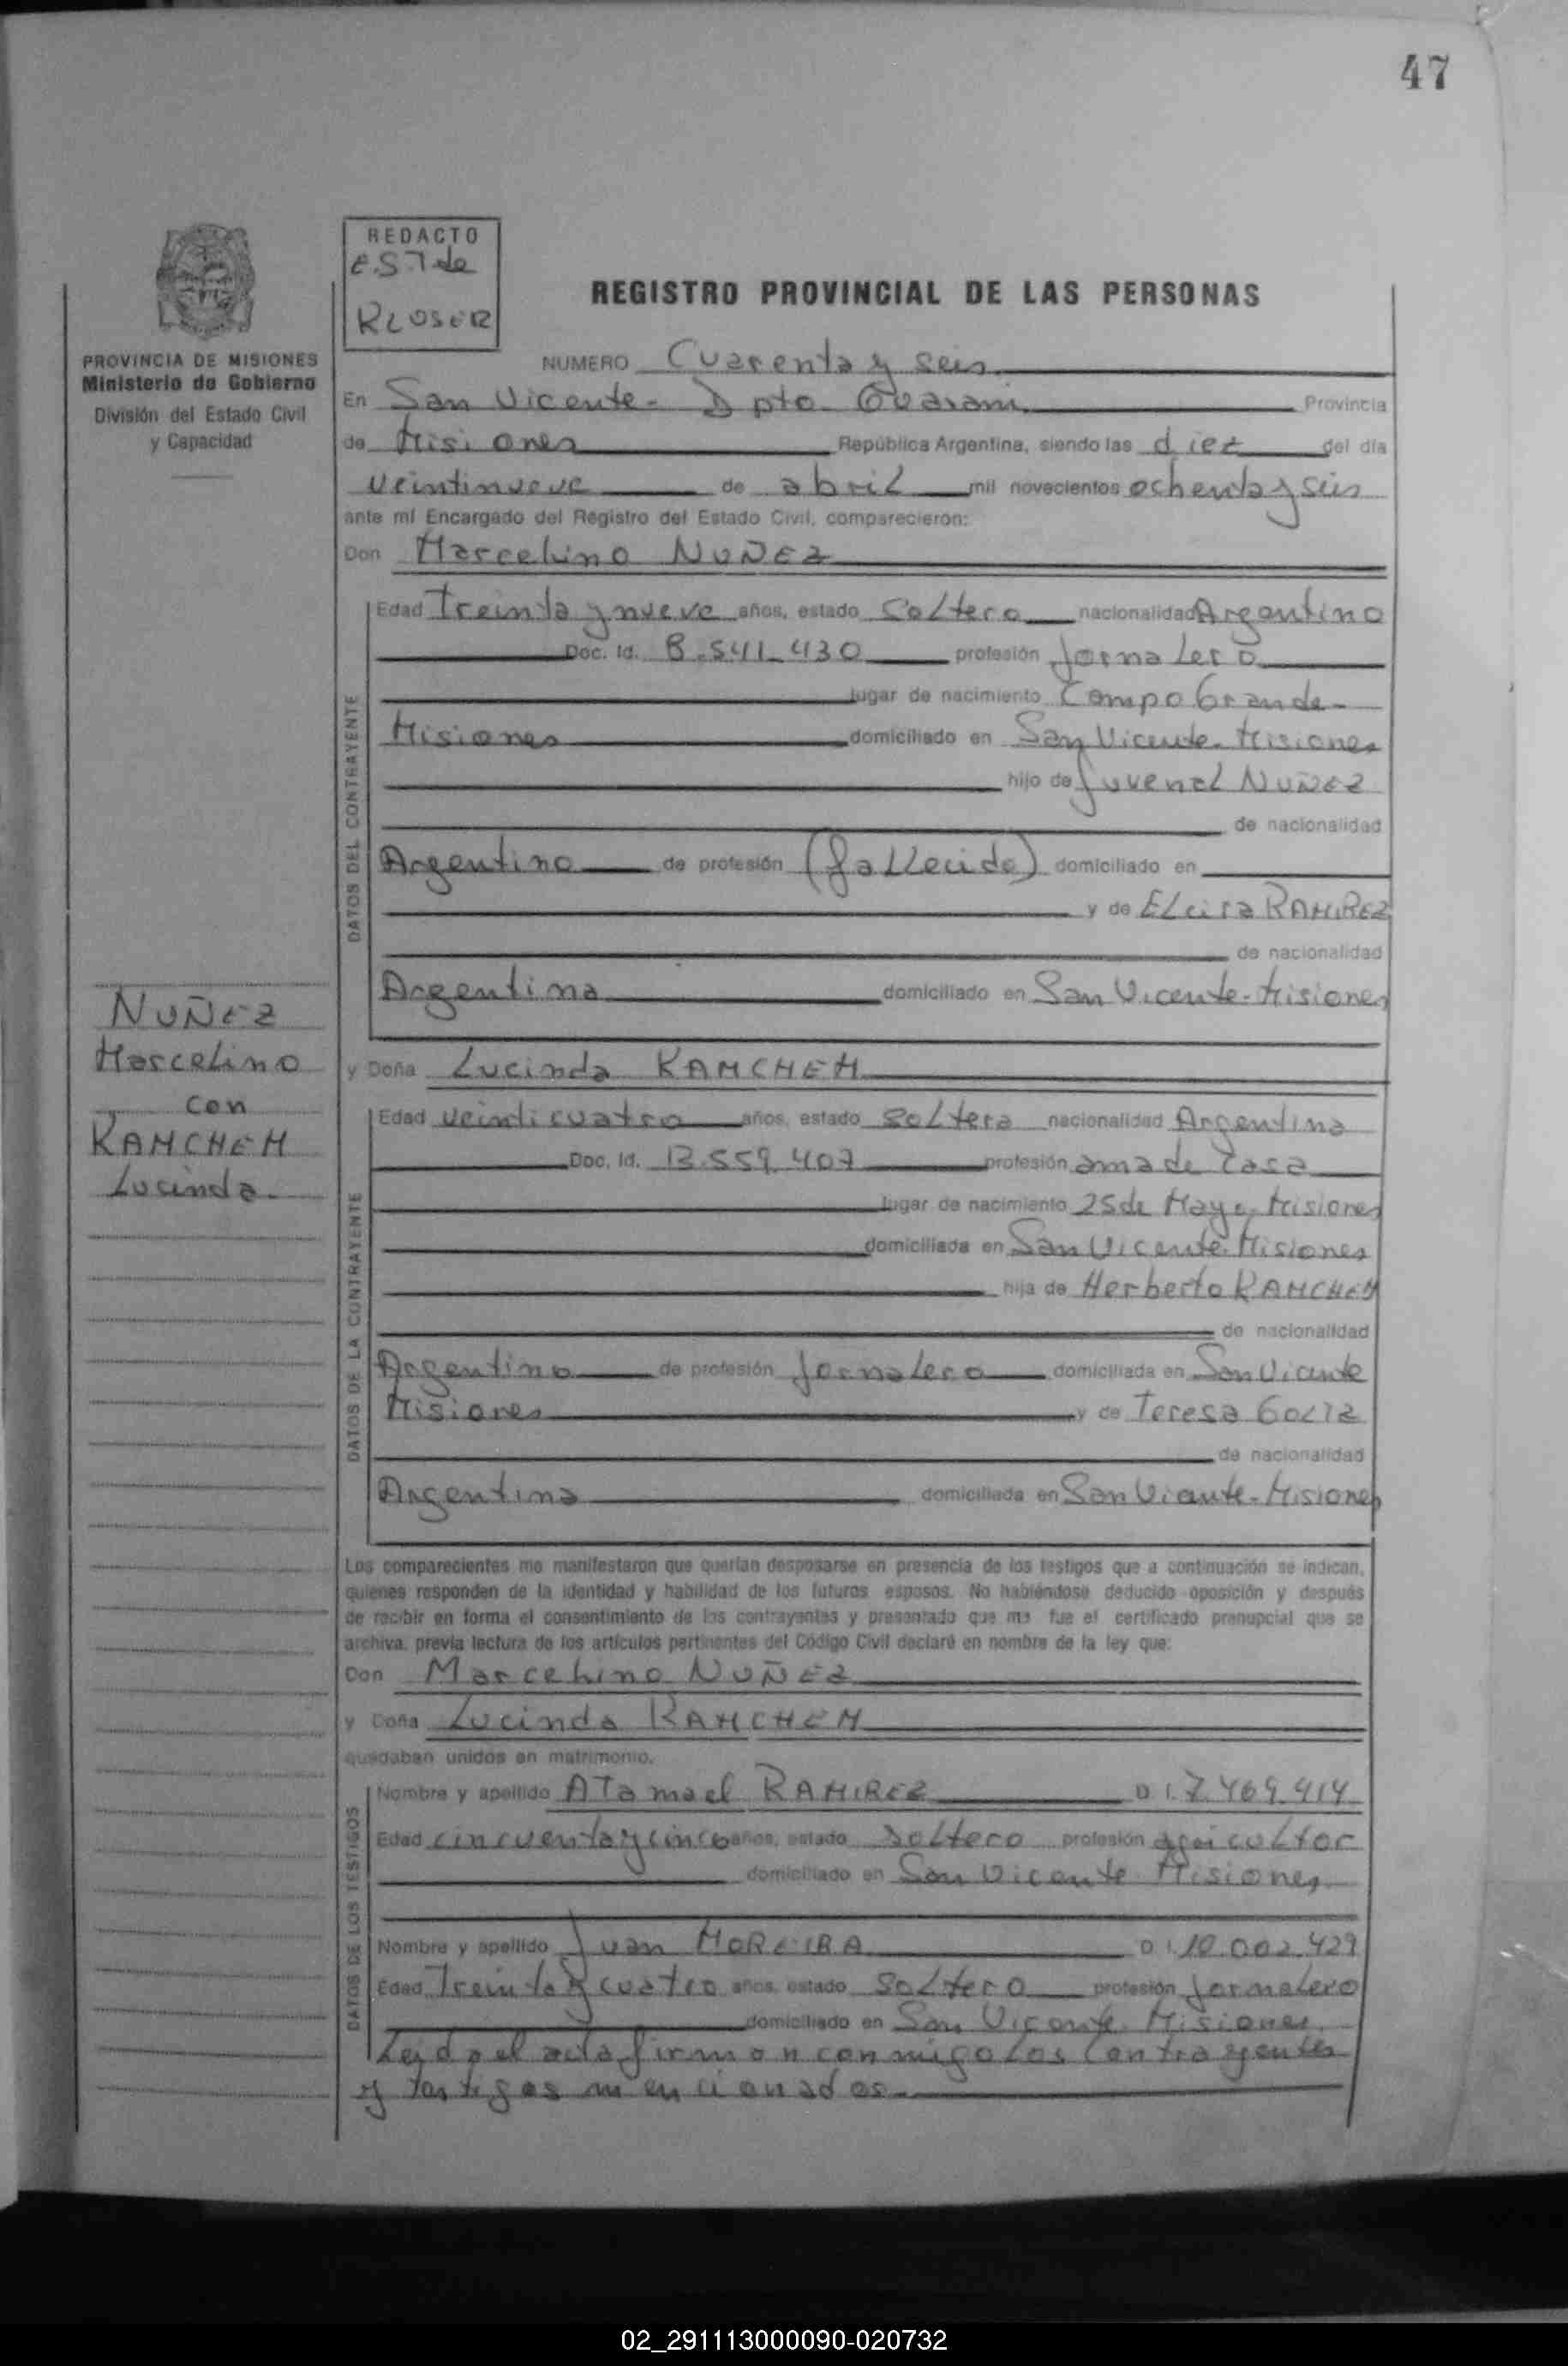 47
REDACTO
E.S.T de
KLOSER
REGISTRO PROVINCIAL DE LAS PERSONAS
PROVINCIA DE MISIONES
Ministerio de Gobierno
División del Estado Civil
y Capacidad
NUMERO Cuarenta y seis
En San Vicente - Dpto. Guarani Provincia
de Misiones República Argentina, siendo las diez del día
veintinueve de abril mil novecientos ochenta y seis
ante mí Encargado del Registro del Estado Civil, comparecieron:
Don Marcelino NUÑEZ
DATOS DEL CONTRAYENTE
Edad Treinta y nueve años, estado Soltero nacionalidad Argentino
Doc. Id. 8.541.430 profesión Jornalero
lugar de nacimiento Campo Grande -
Misiones domiciliado en San Vicente. Misiones
hijo de Juvenal NUÑEZ
de nacionalidad
Argentino de profesión (fallecido) domiciliado en
y de Elcira RAMIREZ
de nacionalidad
Argentina domiciliado en San Vicente - Misiones
NUÑEZ
Marcelino
con
KAMCHEM
Lucinda
y Doña Lucinda KAMCHEM
DATOS DE LA CONTRAYENTE
Edad veinticuatro años, estado soltera nacionalidad Argentina
Doc. Id. 13.559.407 profesión ama de casa
lugar de nacimiento 25 de Mayo, Misiones
domiciliada en San Vicente. Misiones
hija de Herberto KAMCHEM
de nacionalidad
Argentino de profesión Jornalero domiciliada en San Vicente
Misiones y de Teresa
de nacionalidad
Argentina domiciliada en San Vicente - Misiones
Los comparecientes me manifestaron que querían desposarse en presencia de los testigos que a continuación se indican,
quienes responden de la identidad y habilidad de los futuros esposos. No habiéndose deducido oposición y después
de recibir en forma el consentimiento de los contrayentes y presentado que me fue el certificado prenupcial que se
archiva, previa lectura de los artículos pertinentes del Código Civil declaré en nombre de la ley que:
Don Marcelino NUÑEZ
y Doña Lucinda KAMCHEM
quedaban unidos en matrimonio.
DATOS DE LOS TESTIGOS
Nombre y apellido Atamael RAMIREZ D.I. 7.469.414
Edad cincuenta y cinco años, estado soltero profesión agricultor
domiciliado en San Vicente Misiones
Nombre y apellido Juan MOREIRA D.I. 10.002.429
Edad Treinta y cuatro años, estado soltero profesión Jornalero
domiciliado en San Vicente. Misiones
Leida el acta firman conmigo los contrayentes
y testigos mencionados.
02_291113000090-020732